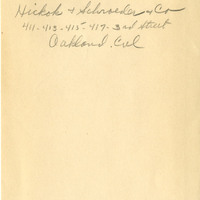 Hickok & Schroeder & Co
411-413-415-417-3rd Street
Oakland. Cal